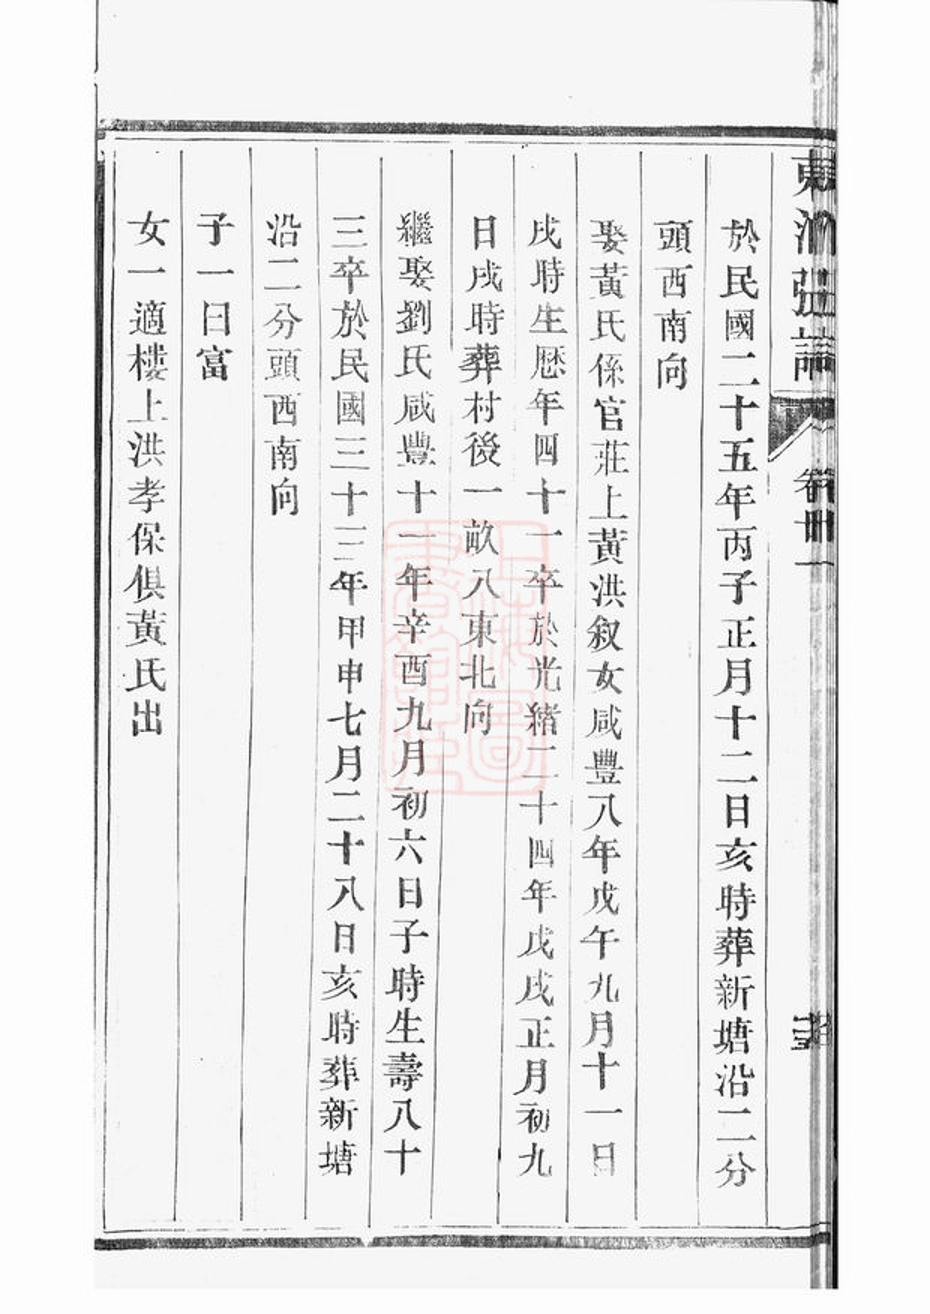 於民國二十五年丙子正月十二日亥時葬新塘沿二分
頭西南向
娶黃氏係官莊上黃洪叙女咸豐八年戊午九月十一日
戌時生歷年四十一卒於光緒二十四年戊戌正月初九
日戌時葬村後一畝八東北向
繼娶劉氏咸豐十一年辛酉九月初六日子時生壽八十
三卒於民國三十三年甲申七月二十八日亥時葬新塘
沿二分頭西南向
子一曰富
女一適樓上洪孝保俱黃氏出